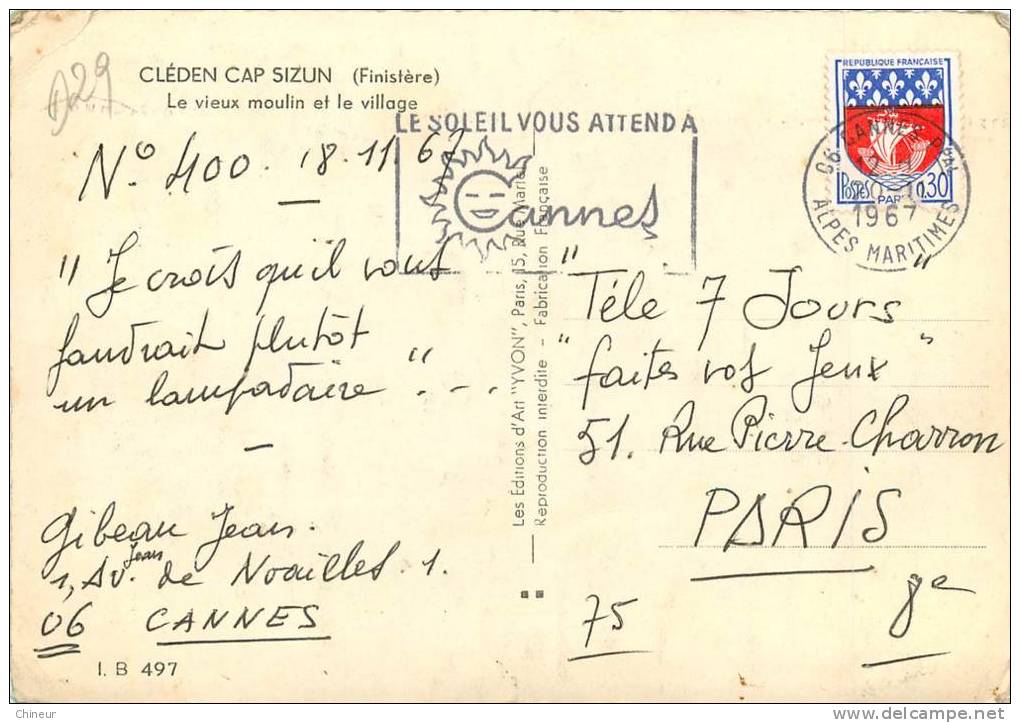 D29
CLÉDEN CAP SIZUN (Finistère)
Le vieux moulin et le village
LE SOLEIL VOUS ATTEND A
Cannes
REPUBLIQUE FRANÇAISE
POSTES 0.30
PARIS
06 CANNES PAL
1967
ALPES MARITIMES
N° 400 18.11.67
" Je crois qu'il vous
faudrait plutôt
un lampadaire " . - -
Gibeau Jean.
1, Av. Jean de Noailles. 1.
06 CANNES
I. B 497
Les Editions d'Art "YVON", Paris, 15, Rue Mariel
Reproduction interdite - Fabrication Française
" Téle 7 Jours "
" faites vos Jeux "
51. Rue Pierre Charron
PARIS
75 8e
Chineur
delcampe.net